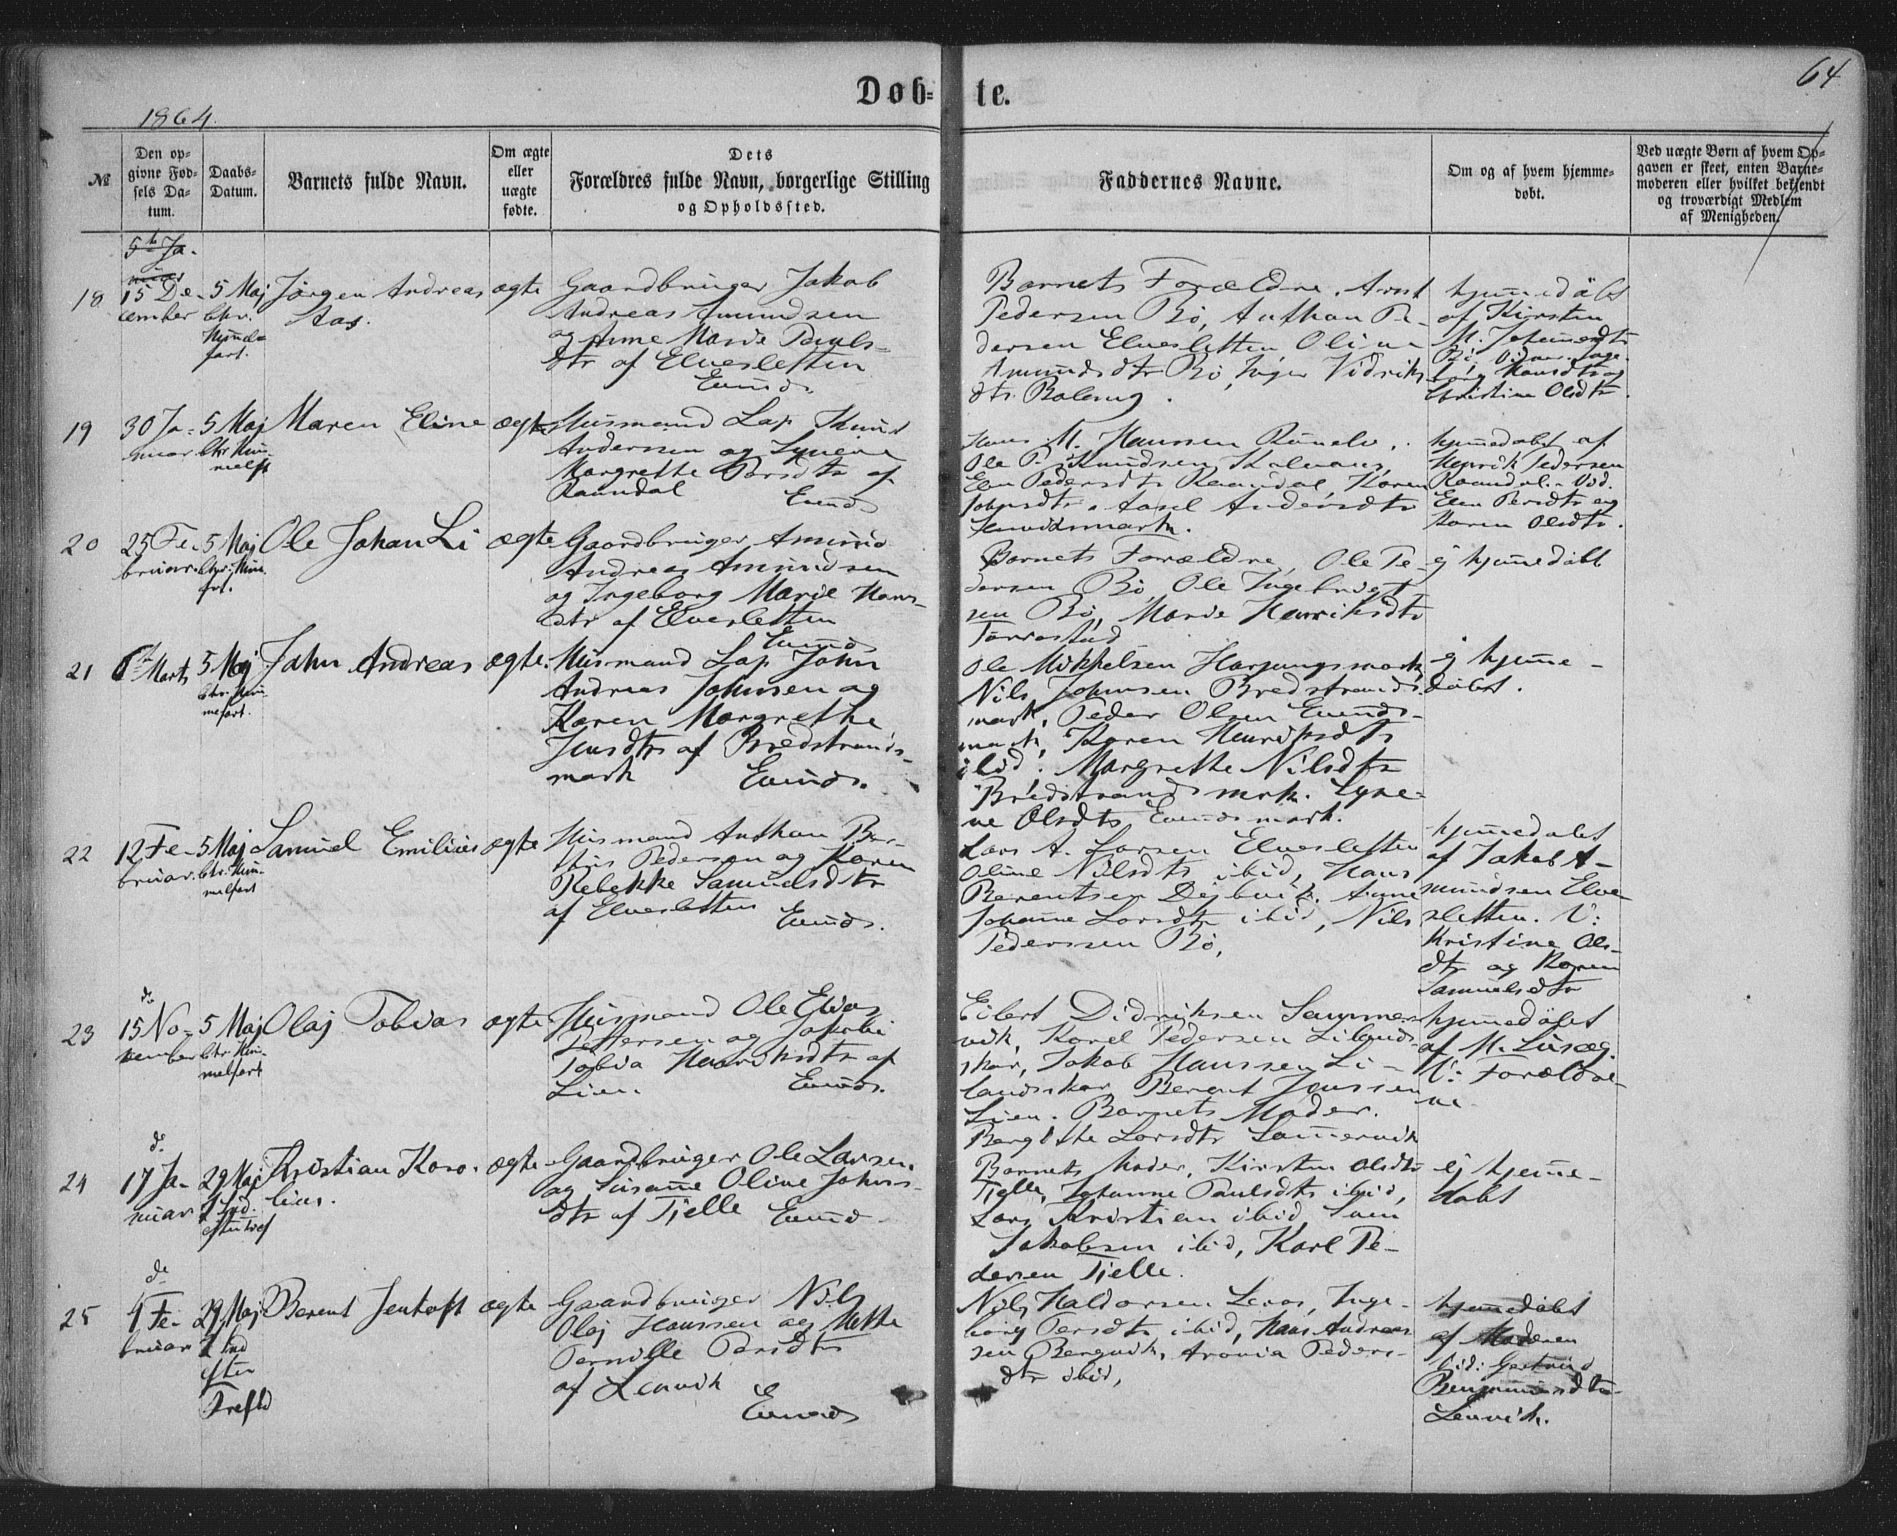 64
Døb-te.
1864.
№
Den op-
givne Fød-
sels Da-
tum.
Daabs-
Datum.
Barnets fulde Navn.
Om ægte
eller
uægte
fødte.
Dets
Forældres fulde Navn, borgerlige Stilling
og Opholdssted.
Faddernes Navne.
Om og af hvem hjemme-
døbt.
Ved uægte Børn af hvem Op-
gaven er skeet, enten Barne-
moderen eller hvilket bekjendt
og troværdigt Medlem
af Menigheden.
5te Ja-
nuar
18
15 De-
cember
5 Maj
Chr.
Himmel-
fart.
Jørgen Andreas
Aas.
ægte
Gaardbruger Jakob
Andreas Amundsen
og Anne Marie Pauls-
dtr af Elvesletten
Evends
Barnets Forældre, Arnt
Pedersen Bø, Anthon Pe-
dersen Elvesletten Oline
Amundsdtr Bø, Inger Vidriks
dtr Balsnug.
hjemmedöbt
af Kirsten
Bø. Vidner. Inge-
borg Hansdtr og
Christine Olsdtr.
19
30 Ja-
nuar
5 Maj
Chr Him-
melft
Maren Eline
ægte
Husmand Lap Knud
Andersen og
Margrethe Persdtr af
Raandal
Evends
Hans M. Hanssen
Ole P. Knudsen
Elen Pedersdtr Raandal, Karen
Johnsdtr. Aasel Andersdtr
hjemmedøbt af
Henrik Pedersen
Raandal. Vid.
Elen Persdtr og
Karen Olsdtr.
20
25 Fe-
bruar.
5 Maj
Chr. Him.
frt.
Ole Johan Li
ægte
Gaardbruger Amund
Andreas Amundsen
og Ingeborg Marie Hans-
dtr af Elvesletten
Evends
Barnets Forældre, Ole Pe-
dersen Bø, Ole Ingebrigt-
sen Bø, Marie Henriksdtr
Tørrestad
ej hjemmedöbt
21
6te Marts
5 Maj
Chr. Him-
melfart.
John Andreas
ægte.
Husmand Lap John
Andreas Johnsen og
Karen Margrethe
Jensdtr af Bredstrands-
mark
Evends.
Ole Mikkelsen Harjangsmark
Nils Johnsen Bredstrands-
mark, Peder Olsen Evends-
mark, Karen Henriksdtr
ibid. Margrethe Nilsdtr
Bredstrandsmrk.
ne Olsdtr Evendsmark.
ej hjemme-
døbt.
22
12 Fe-
bruar.
5 Maj
Chr. Him-
melfart
Samuel Emilius
ægte
Husmand Anthon
Pedersen og Karen
Rebekke Samuelsdtr
af Elvesletten
Evends.
Lars A. Larsen Elvesletten
Oline Nilsdtr ibid, Hans
Berentsen Dybvik, Anne
Johanne Larsdtr ibid, Nils
Pederssen Bø,
hjemmedøbt
af Jakob A-
mundsen Elve-
sletten. V:
Kristine Ols-
dtr og Karen
Samuelsdtr
23
15 No-
vember
5 Maj
Chr. Him-
melfart
Olaj Tobias
ægte
Husmand Ole Elias
og Jakobi
Tobia Henriksdtr af
Lien.
Evends.
Eilert Didriksen Sammer-
vik, Karel Pedersen Liland-
skar, Jakob Hanssen Li-
landskar Berent Jenssen
Lien. Barnets Moder.
Bergitte Larsdtr Samervik
hjemmedöbt
af M.
V: Forældre-
ne
24
17 Ja-
nuar
29 Maj
2 Snd.
eftr Tref
Kristian Karo-
lius.
ægte
Gaardbruger Ole Larsen.
og Susanne Oline Johns-
dtr af Tjelle
Evend
Barnets Moder, Kirsten Olsdtr
Tjelle, Johanne Paulsdtr ibid,
Lars Kristian ibid, Sven
Jakobsen ibid, Karl Pe-
dersen Tjelle.
ej hjemme-
døbt
25
4 Fe-
bruar
29 Maj
2 Snd
efter
Trefld
Berent Jentoft
ægte
Gaardbruger Nils
Olaj Hanssen og Mette
Pernille Persdtr
af Lenvik
Evends
Nils Haldorsen Leros, Inge-
borg Persdtr ibid, Hans Andreas
sen Bergvik, Aronia Peders-
dtr ibid,
hjemmedøbt
af Moderen
Vid: Gertrud
Benjaminsdtr
Lenvik.